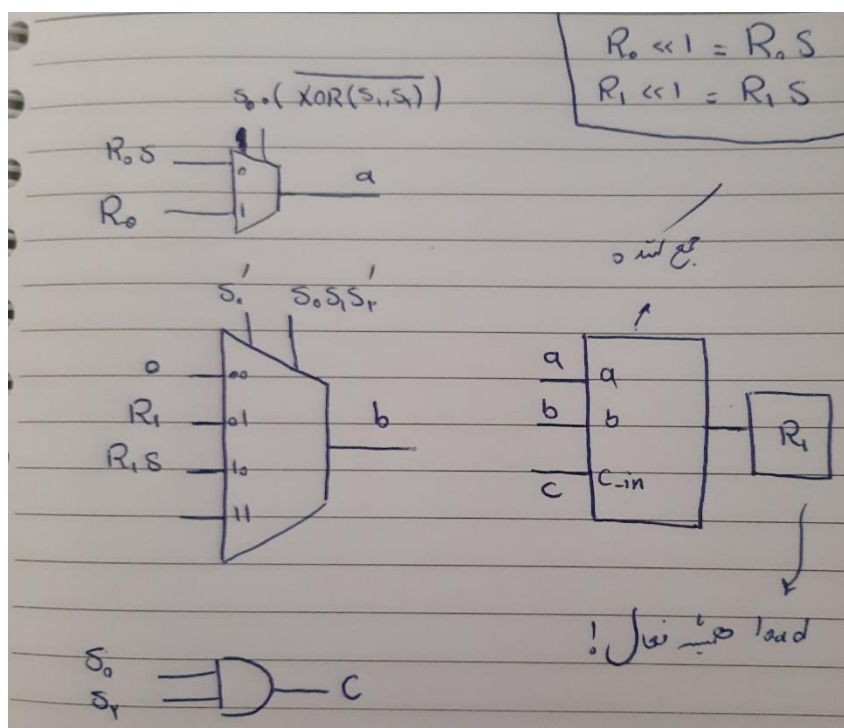 R₀ << 1 = R₀ S
R₁ << 1 = R₁ S
S₀.( \overline{XOR(S₁, S₂)} )
R₀ S
0
a
R₀
1
جمع کننده
S₀'
S₀ S₁ S₂'
0
00
R₁
01
b
R₁ S
10
11
a
a
b
b
C
C_in
R₁
load همیشه فعال!
S₀
S₂
C